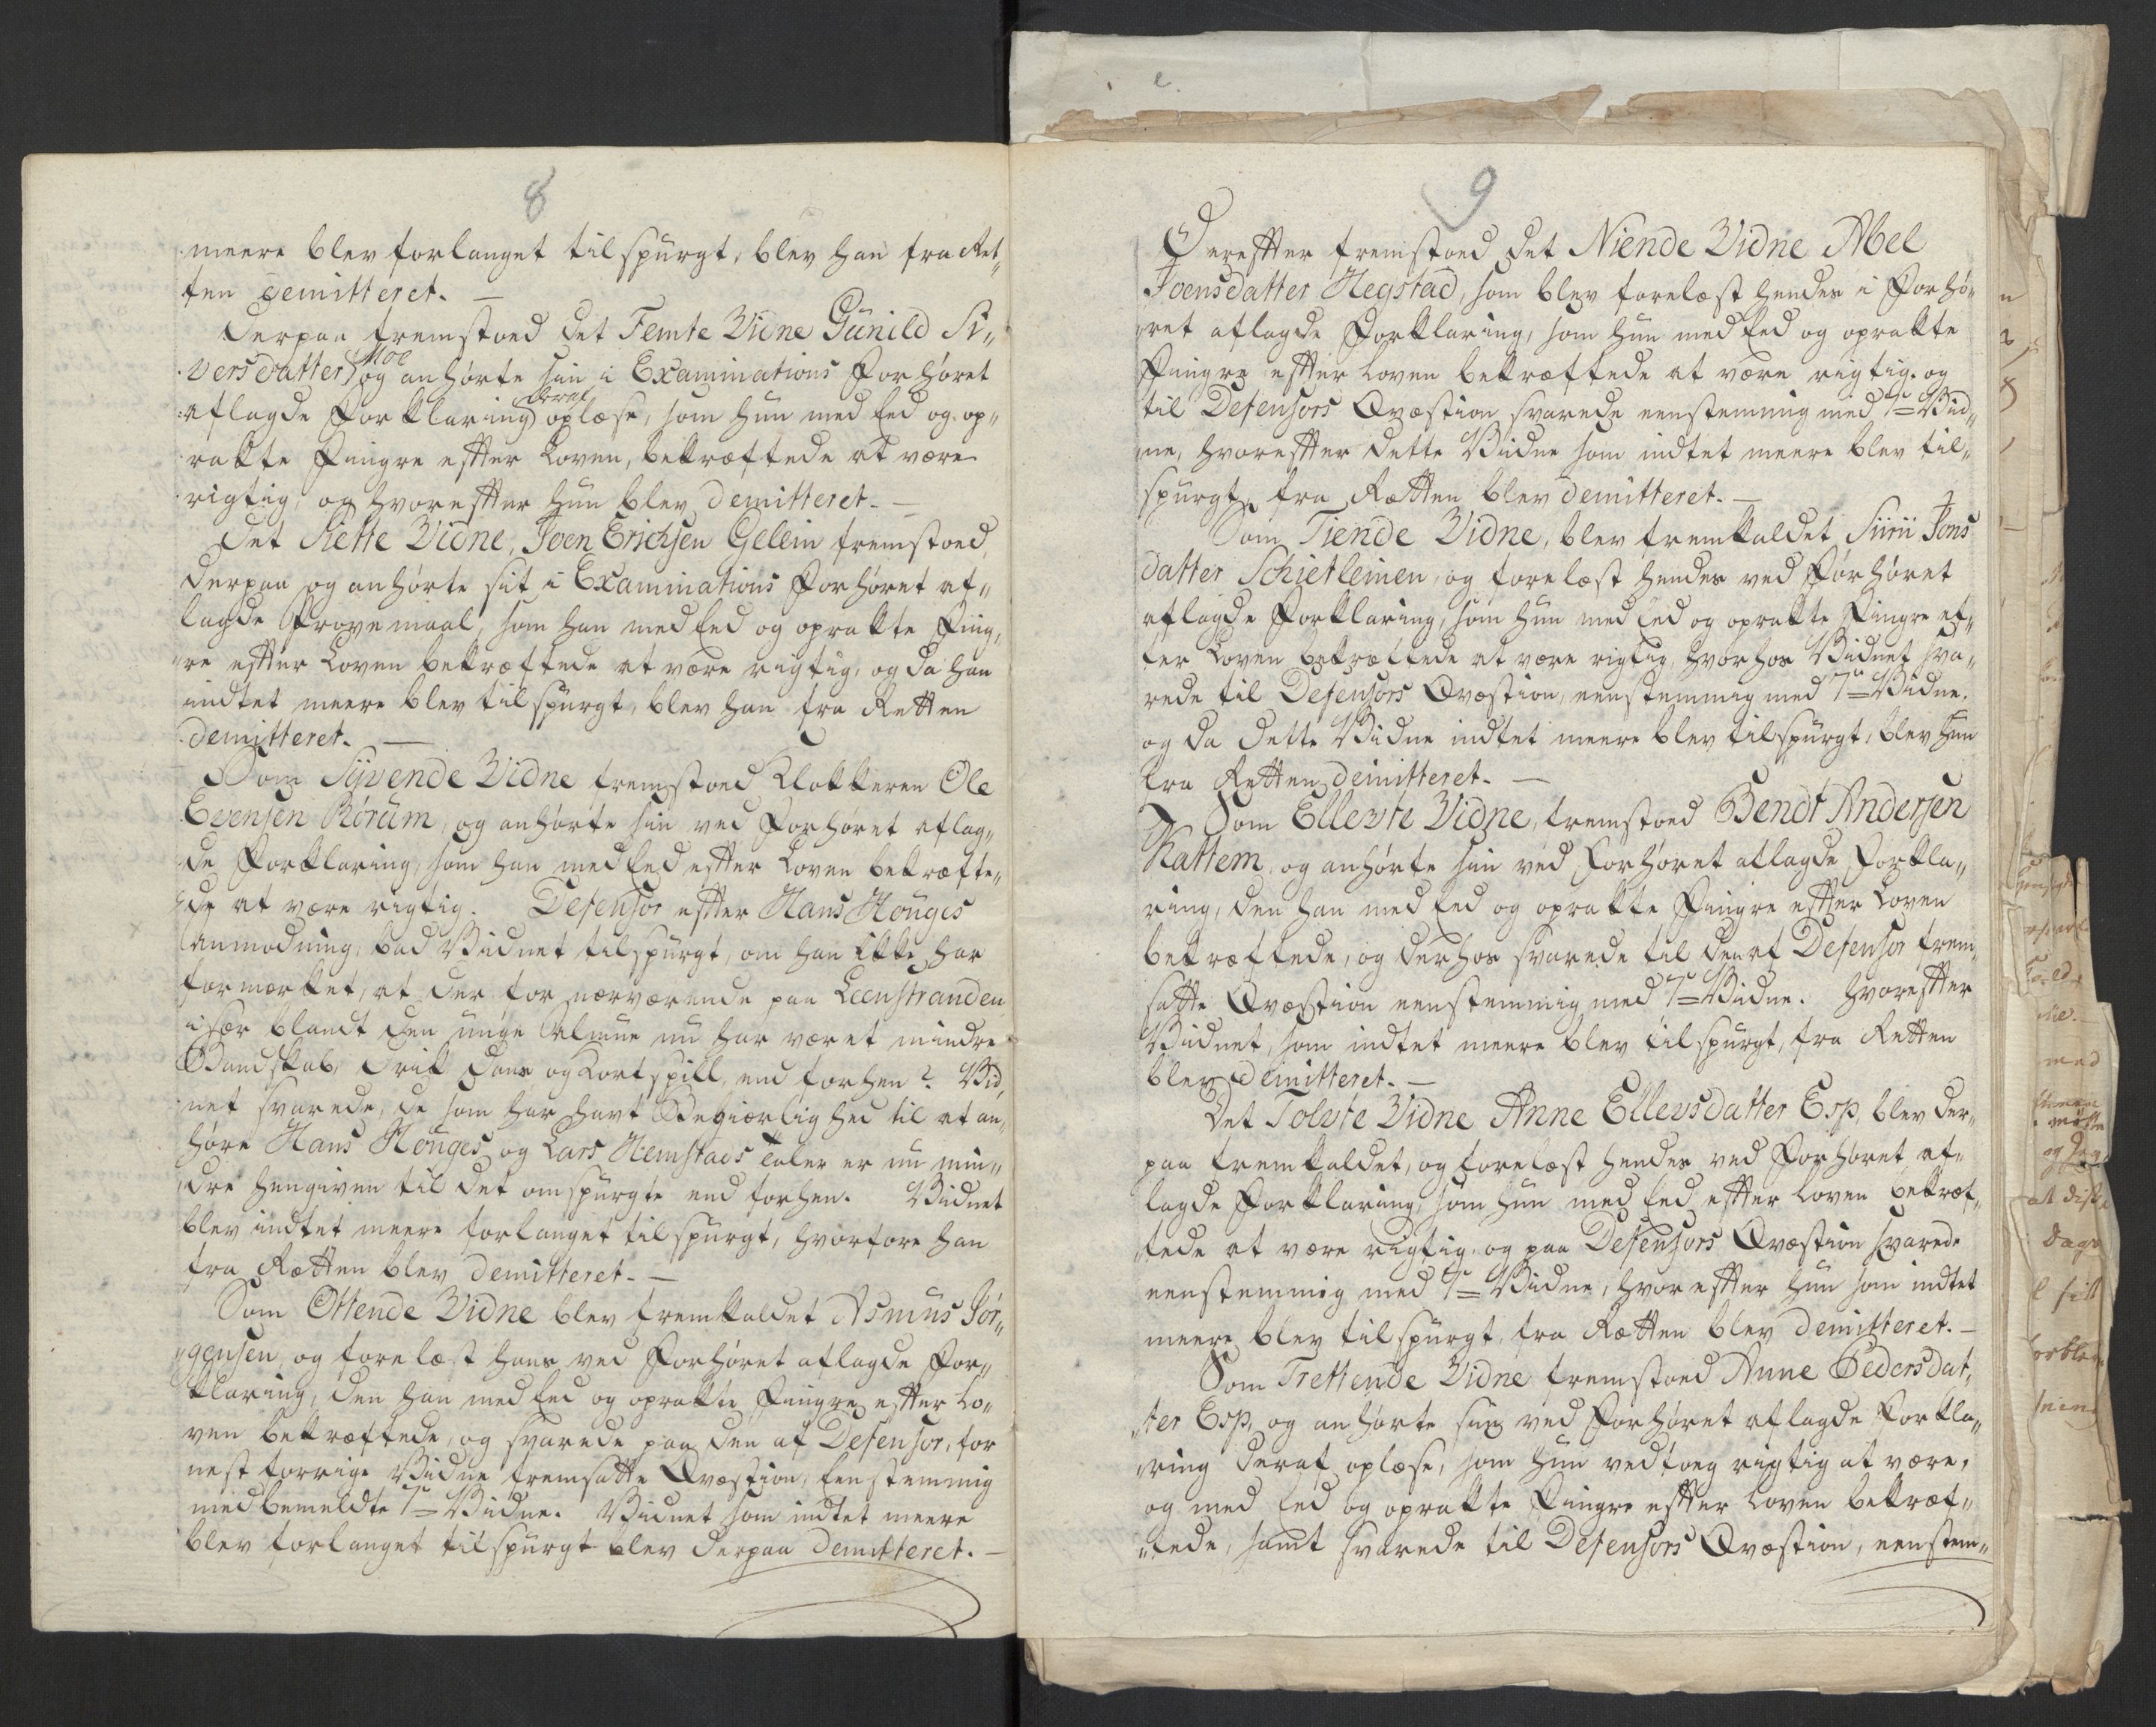 8
meere blev forlanget tilspurgt, blev han fra Ret„
ten demitteret. —
Derpaa fremstoed det Femte Vidne Gunild Si„
versdatter Moe og anhørte sin i Examinations Forhøret
aflagde Forklaring deraf oplæse, som hun med Eed og op„
rakte Fingre efter Loven, bekræftede at være
rigtig, og hvorefter hun blev demitteret. —
Det Siette Vidne, Joen Erichsen Gellein fremstoed
derpaa og anhørte sit i Examinations Forhøret af„
lagde Provemaal, som han med Eed og oprakte Fing„
re efter Loven bekræftede at være rigtig, og da han
indtet meere blev tilspurgt, blev han fra Retten
demitteret. —
Som Syvende Vidne fremstoed Klokkeren Ole
Evensen Rørum, og anhørte sin ved Forhøret aflag„
de Forklaring, som han med Eed efter Loven bekræfte„
de at være rigtig. Defensor efter Hans Houges
anmodning, bad Vidnet tilspurgt, om han ikke har
formærket, at der for nærværende paa Leenstranden
især blandt den unge Almue nu har været mindre
Bandskab, Drik Dans og Kortspill, end forhen? Vid„
net svarede, de som har havt Begiærlighed til at an„
høre Hans Houges og Lars Hemstads Taler er nu min„
dre hengiven til det omspurgte end forhen. Vidnet
blev indtet meere forlanget tilspurgt, hvorfore han
fra Rætten blev demitteret. —
Som Ottende Vidne blev fremkaldet Asmus Jør„
gensen, og forelæst hans ved Forhøret aflagde For„
klaring, den han med Eed og oprakte Fingre efter Lo„
ven bekræftede, og svarede paa den af Defensor, for
nest forrige Vidne fremsatte Qvæstion, Eenstemmig
med bemeldte 7de Vidne. Vidnet som indtet meere
blev forlanget tilspurgt blev derpaa demitteret. —
9
Derefter fremstoed det Niende Vidne Abel
Joensdatter Hegstad, som blev forelæst hendes i Forhø„
ret aflagde Forklaring, som hun med Eed og oprakte
Fingre efter Loven bekræftede at være rigtig, og
til Defensors Qvæstion svarede eenstemmig med 7de Vid„
ne, hvorefter dette Vidne som indtet meere blev til„
spurgt, fra Rætten blev demitteret. —
Som Tiende Vidne, blev fremkaldet Siirii Jons
datter Schietleinen, og forelæst hendes ved Forhøret
aflagde Forklaring, som hun med Eed og oprakte Fingre ef„
ter Loven bekræftede at være rigtig, hvorhos Vidnet sva„
rede til Defensors Qvæstion, eenstemmig med 7de Vidne.
og da dette Vidne indtet meere blev tilspurgt, blev hun
fra Retten demitteret. —
Som Ellevte Vidne, fremstoed Bendt Andersen
Kattem, og anhørte sin ved Forhøret aflagde Forkla„
ring, den han med Eed og oprakte Fingre efter Loven
bekræftede, og derhos svarede til den af Defensor frem„
satte Qvæstion eenstemmig med 7de Vidne. Hvorefter
Vidnet, som indtet meere blev tilspurgt, fra Retten
blev demitteret. —
Det Tolvte Vidne Anne Ellevsdatter Esp, blev der„
paa fremkaldet, og forelæst hendes ved Forhøret af„
lagde Forklaring, som hun med Eed efter Loven bekræf„
tede at være rigtig, og paa Defensors Qvæstion svarede
eenstemmig med 7de Vidne, hvorefter hun som indtet
meere blev tilspurgt, fra Rætten blev demitteret. —
Som Trettende Vidne fremstoed Anne Pedersdat„
„ter Esp, og anhørte sin ved Forhøret aflagde Forkla„
ring deraf oplæse, som hun vedtoeg rigtig at være,
og med Eed og oprakte Fingre efter Loven bekræf„
„tede, samt svarede til Defensors Qvæstion, eenstem„